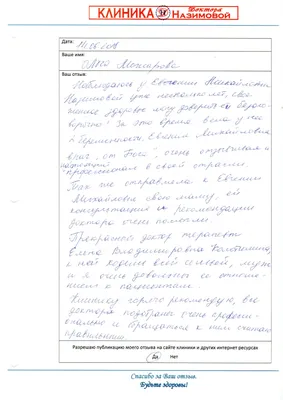 КЛИНИКА Доктора Назимовой
Дата:
Ваше имя:
Ольга
Ваш отзыв:
Наблюдаюсь у Евгении Михайловны
Назимовой уже несколько лет, свое
женское здоровье могу доверить ей безого-
ворочно! За это время вела у нас
беременности. Евгения Михайловна
врач "от Бога", очень отзывчивая и
профессионал в своей отрасли.
Так же отправляла к Евгении
Михайловне свою маму, ей
консультация и рекомендации
доктора очень помогли.
Прекрасный доктор терапевт
Елена Владимировна
к ней ходим всей семьей, муж
и я очень довольны ее отноше-
нием к пациентам.
Клинику горячо рекомендую, все
доктора подобраны очень професси-
онально и обращаться к ним считаю
правильным.
Разрешаю публикацию моего отзыва на сайте клиники и других интернет ресурсах
Да Нет
Спасибо за Ваш отзыв.
Будьте здоровы!